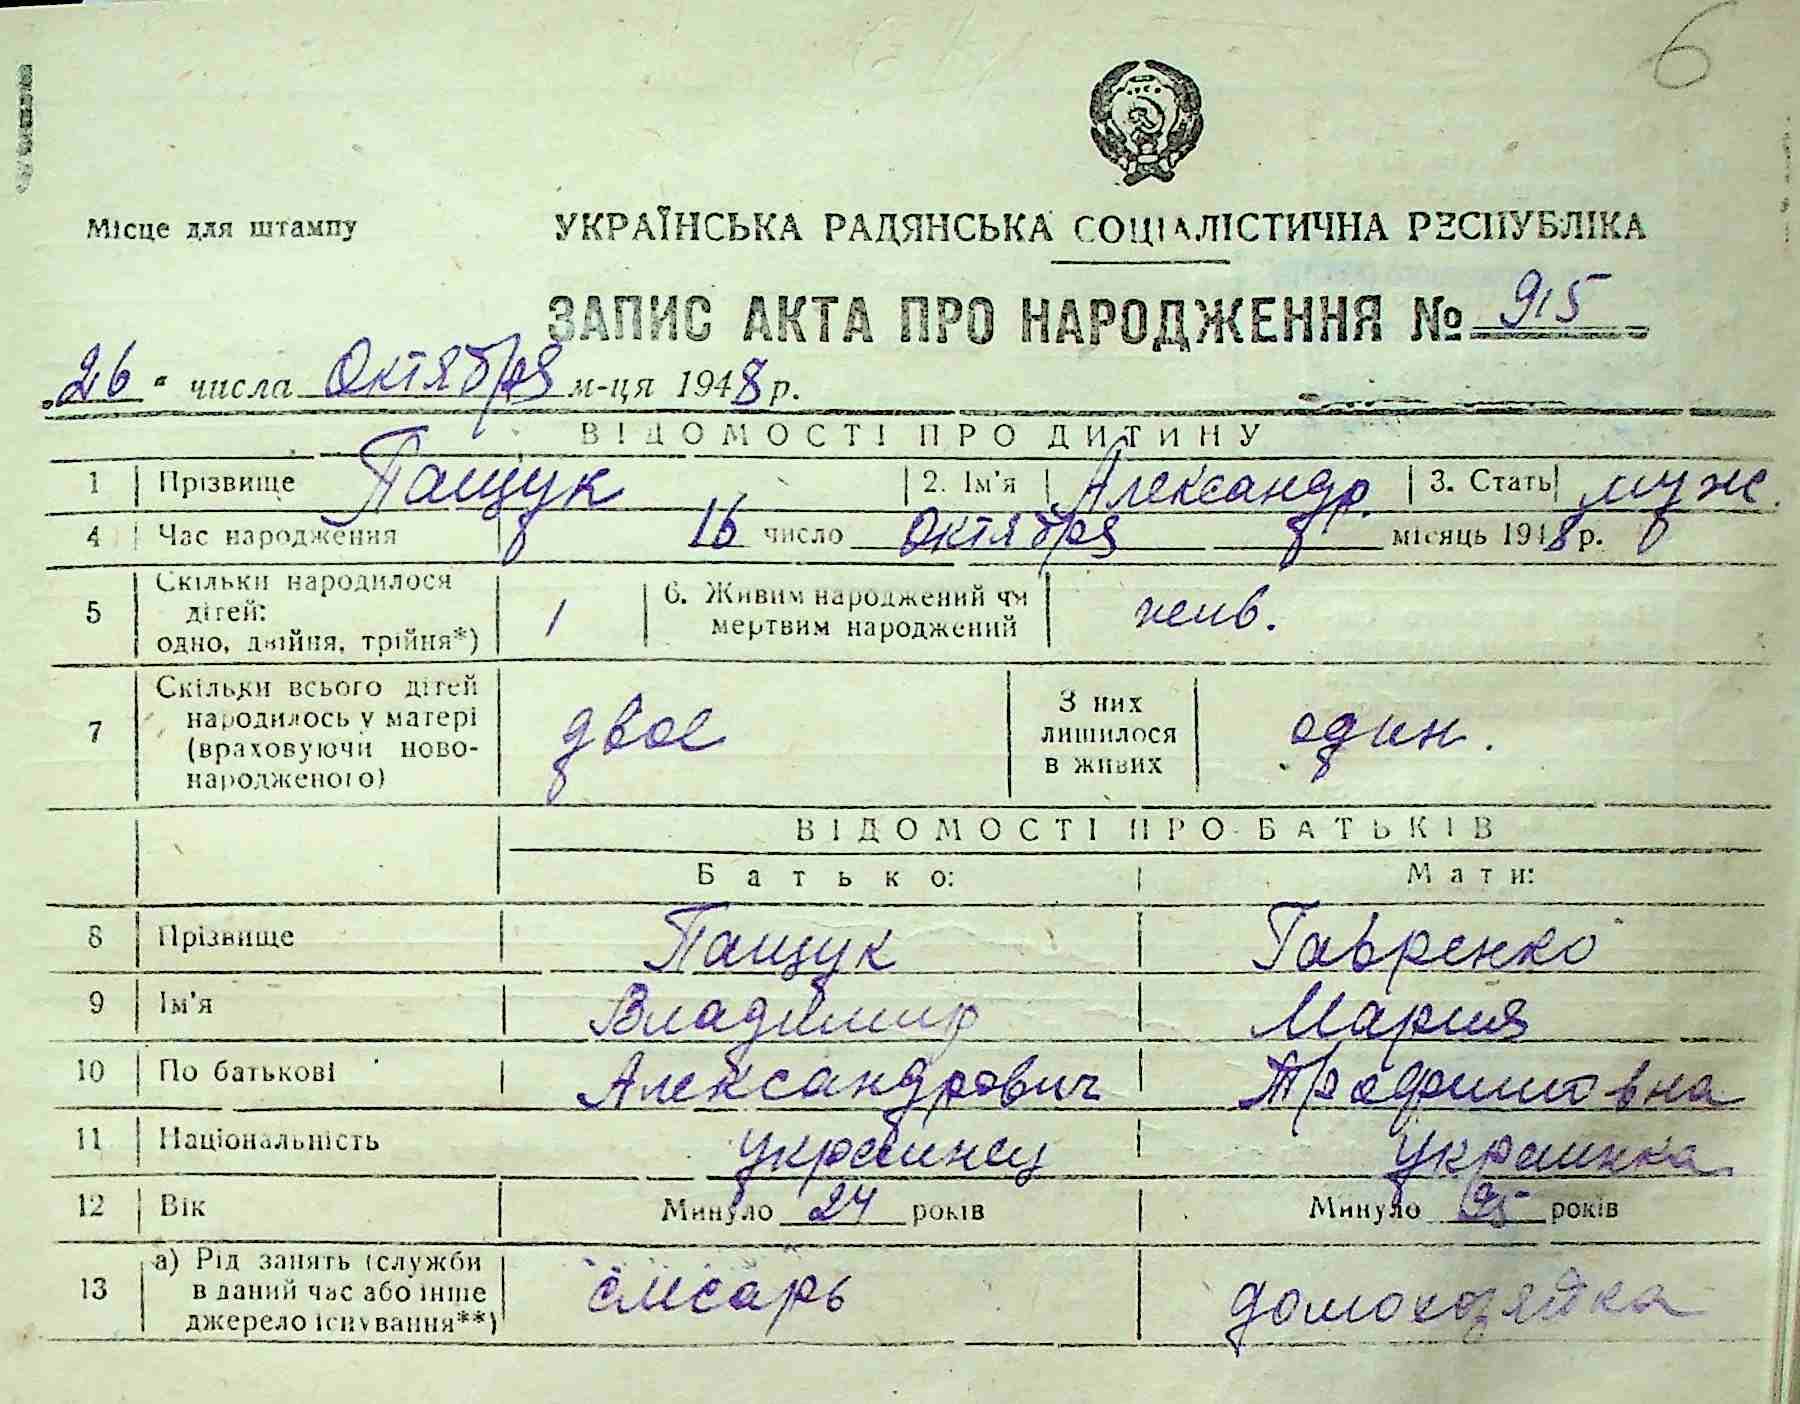 6
Місце для штампу
УКРАЇНСЬКА РАДЯНСЬКА СОЦІАЛІСТИЧНА РЕСПУБЛІКА
ЗАПИС АКТА ПРО НАРОДЖЕННЯ № 915
„26“ числа Октября м-ця 1948 р.
ВІДОМОСТІ ПРО ДИТИНУ
1 Прізвище Пащук 2. Ім'я Александр. 3. Стать муж.
4 Час народження 16 число Октября місяць 1948 р.
5 Скільки народилося дітей: одно, двійня, трійня*) 1 6. Живим народжений чи мертвим народжений жив.
7 Скільки всього дітей народилось у матері (враховуючи новонародженого) двое З них лишилося в живих один.
ВІДОМОСТІ ПРО БАТЬКІВ
Батько: Мати:
8 Прізвище Пащук Гавренко
9 Ім'я Владимир Мария
10 По батькові Александрович Трофимовна
11 Національність украинец украинка
12 Вік Минуло 24 років Минуло років
13 а) Рід занять (служби в даний час або інше джерело існування**) слесарь домохозяйка